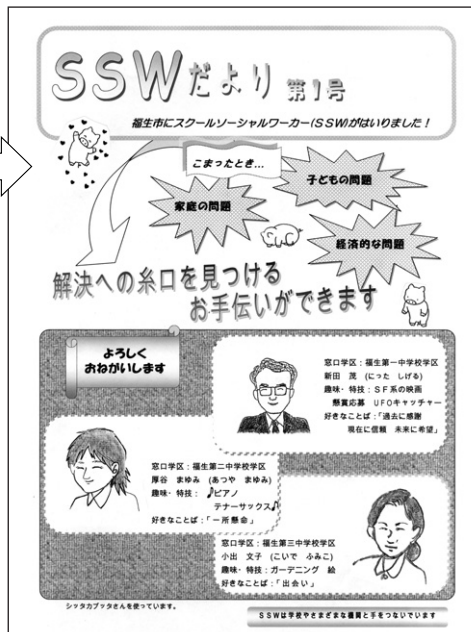 SSWだより 第1号
福生市にスクールソーシャルワーカー(SSW)がはいりました！
こまったとき…
子どもの問題
家庭の問題
経済的な問題
解決への糸口を見つける
お手伝いができます
よろしく
おねがいします
窓口学区：福生第一中学校学区
新田 茂 (にった しげる)
趣味・特技：SF系の映画
懸賞応募 UFOキャッチャー
好きなことば：「過去に感謝
現在に信頼 未来に希望」
窓口学区：福生第二中学校学区
厚谷 まゆみ (あつや まゆみ)
趣味・特技：♪ピアノ
テナーサックス♪
好きなことば：「一所懸命」
窓口学区：福生第三中学校学区
小出 文子 (こいで ふみこ)
趣味・特技：ガーデニング 絵
好きなことば：「出会い」
シッタカブッタさんを使っています。
SSWは学校やさまざまな機関と手をつないでいます